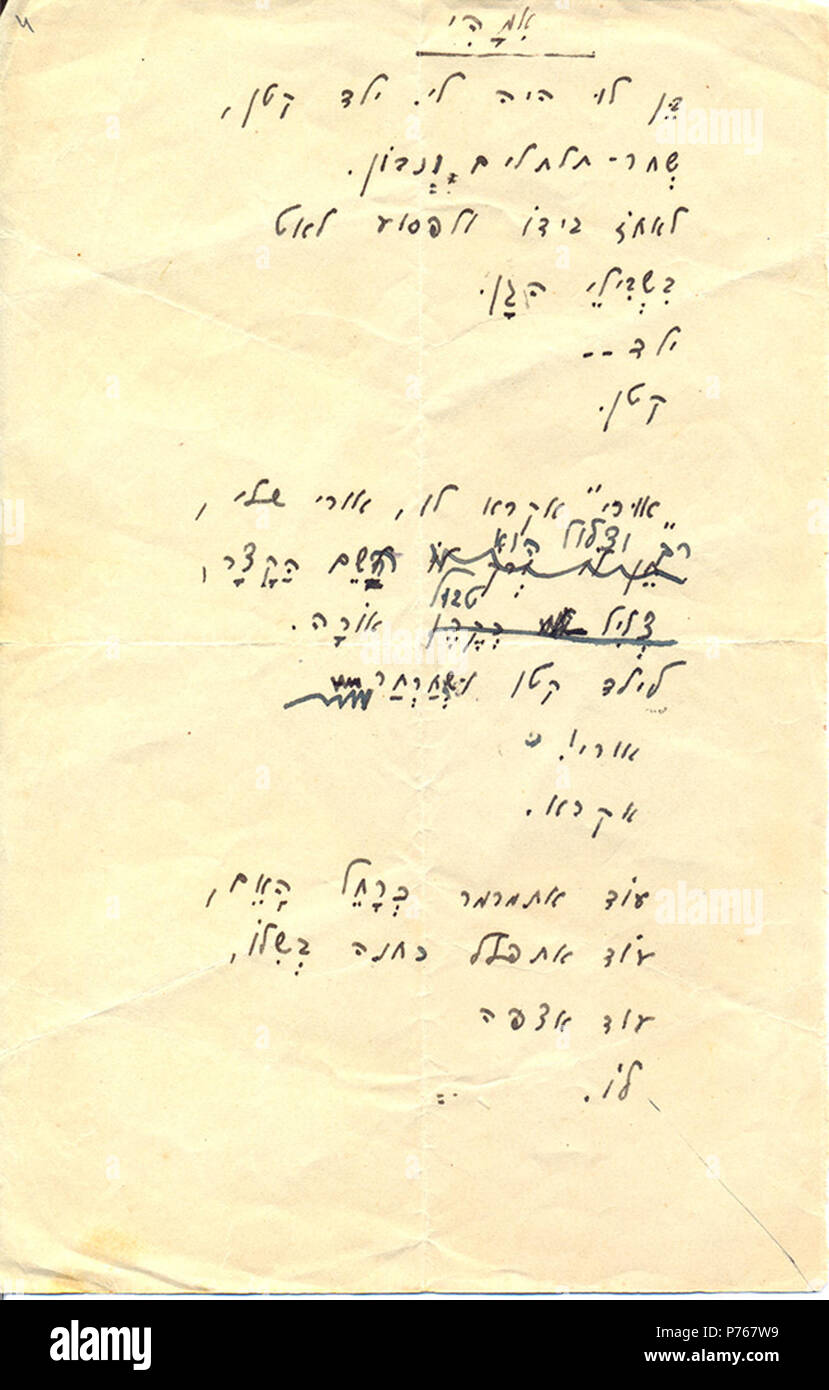 אִמָּהִי
בֵּן לוּ היה לי. ילד קטן,
שְׁחר-תלתלים וְנָבוֹן.
לאחֹז בידוֹ ולפסוע לאט
בִּשְׁבִילֵי הַגָּן.
ילד--
קטן.
"אוּרי" אקרא לו, אורי שלי,
רַךְ וצָלוּל הוא
הַשֵּׁם הַקָּצָר,
טבול
צְלִיל כְּקֶרֶן אוֹרָה.
לילד קטן ושְׁחַרְחַר
אורי!
אקרא.
עוֹד אתמרמר כְּרָחֵל הָאֵם,
עוֹד אתפלל כחנה בְּשִׁלֹו,
עוד אצפה
לוֹ.
alamy
alamy
alamy
Image ID: P767W9
www.alamy.com